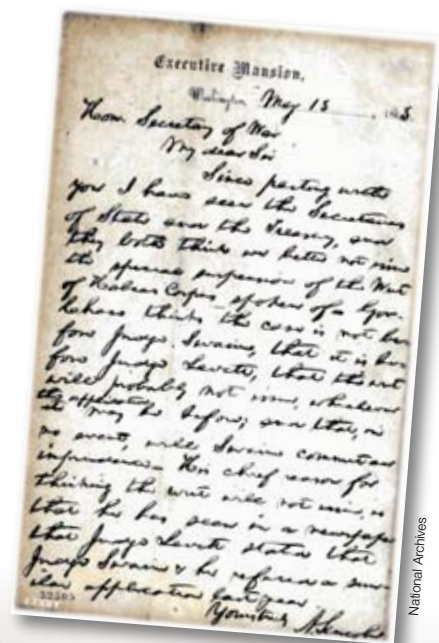 Executive Mansion,
Washington, May 13, 1863.
Hon. Secretary of War
My dear Sir
Since parting with
you I have seen the Secretaries
of State and the Treasury, and
they both think we better not issue
the special suspension of the Writ
of Habeas Corpus spoken of. Gov.
Chase thinks the case is not be-
fore Judge Swaine, that it is be-
fore Judge Levett, that the writ
will probably not issue, whatever
the application
it may be before; and that, in
no event, will Swaine commit an
imprudence. His chief reason for
thinking the writ will not issue, is
that he has seen in a newspaper
that Judge Levett stated that
Judge Swaine & he refused a simi-
lar application last year.
Yours truly A. Lincoln
National Archives